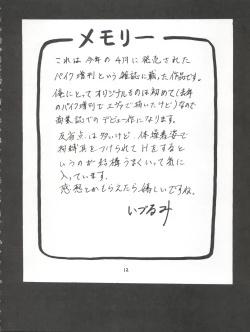 メモリー
これは今年の4月に発売された
バイク増刊という雑誌に載った作品です。
俺にとってオリジナルものは初めて(去年
のバイク増刊でエヴァで描いたけど)なので
商業誌でのデビュー作になります。
反省点は多いけど、体操着姿で
拘束具をつけられてHをすると
いうのが結構うまくいって気に
入っています。
感想とかもらえたら嬉しいですね。
いづるみ
12